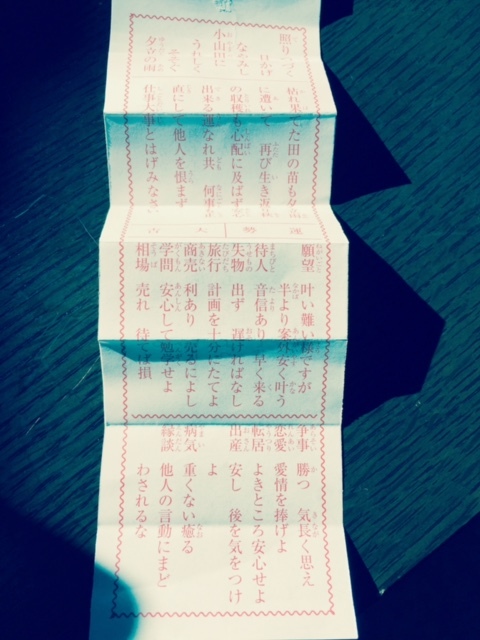 照りつゞく
日かげ
なやみし
小山田に
うれしく
そそぐ
夕立の雨
枯れ果てた田の苗も夕立の雨
に遭いて 再び生き返り秋
の収穫も心配に及ばず必ず
出来る運なれ共 何事も正
直にして他人を恨まず
仕事大事とはげみなさい
運勢 大吉
願望 叶い難い様ですが
半より案外安く叶う
待人 音信あり 早く来る
失物 出ず 遅ければなし
旅行 計画を十分にたてよ
商売 利あり 売るによし
学問 安心して勉学せよ
相場 売れ 待てば損
争事 勝つ 気長く思え
恋愛 愛情を捧げよ
転居 よきところ安心せよ
出産 安し 後を気をつけ
よ
病気 重くない癒る
縁談 他人の言動にまど
わされるな